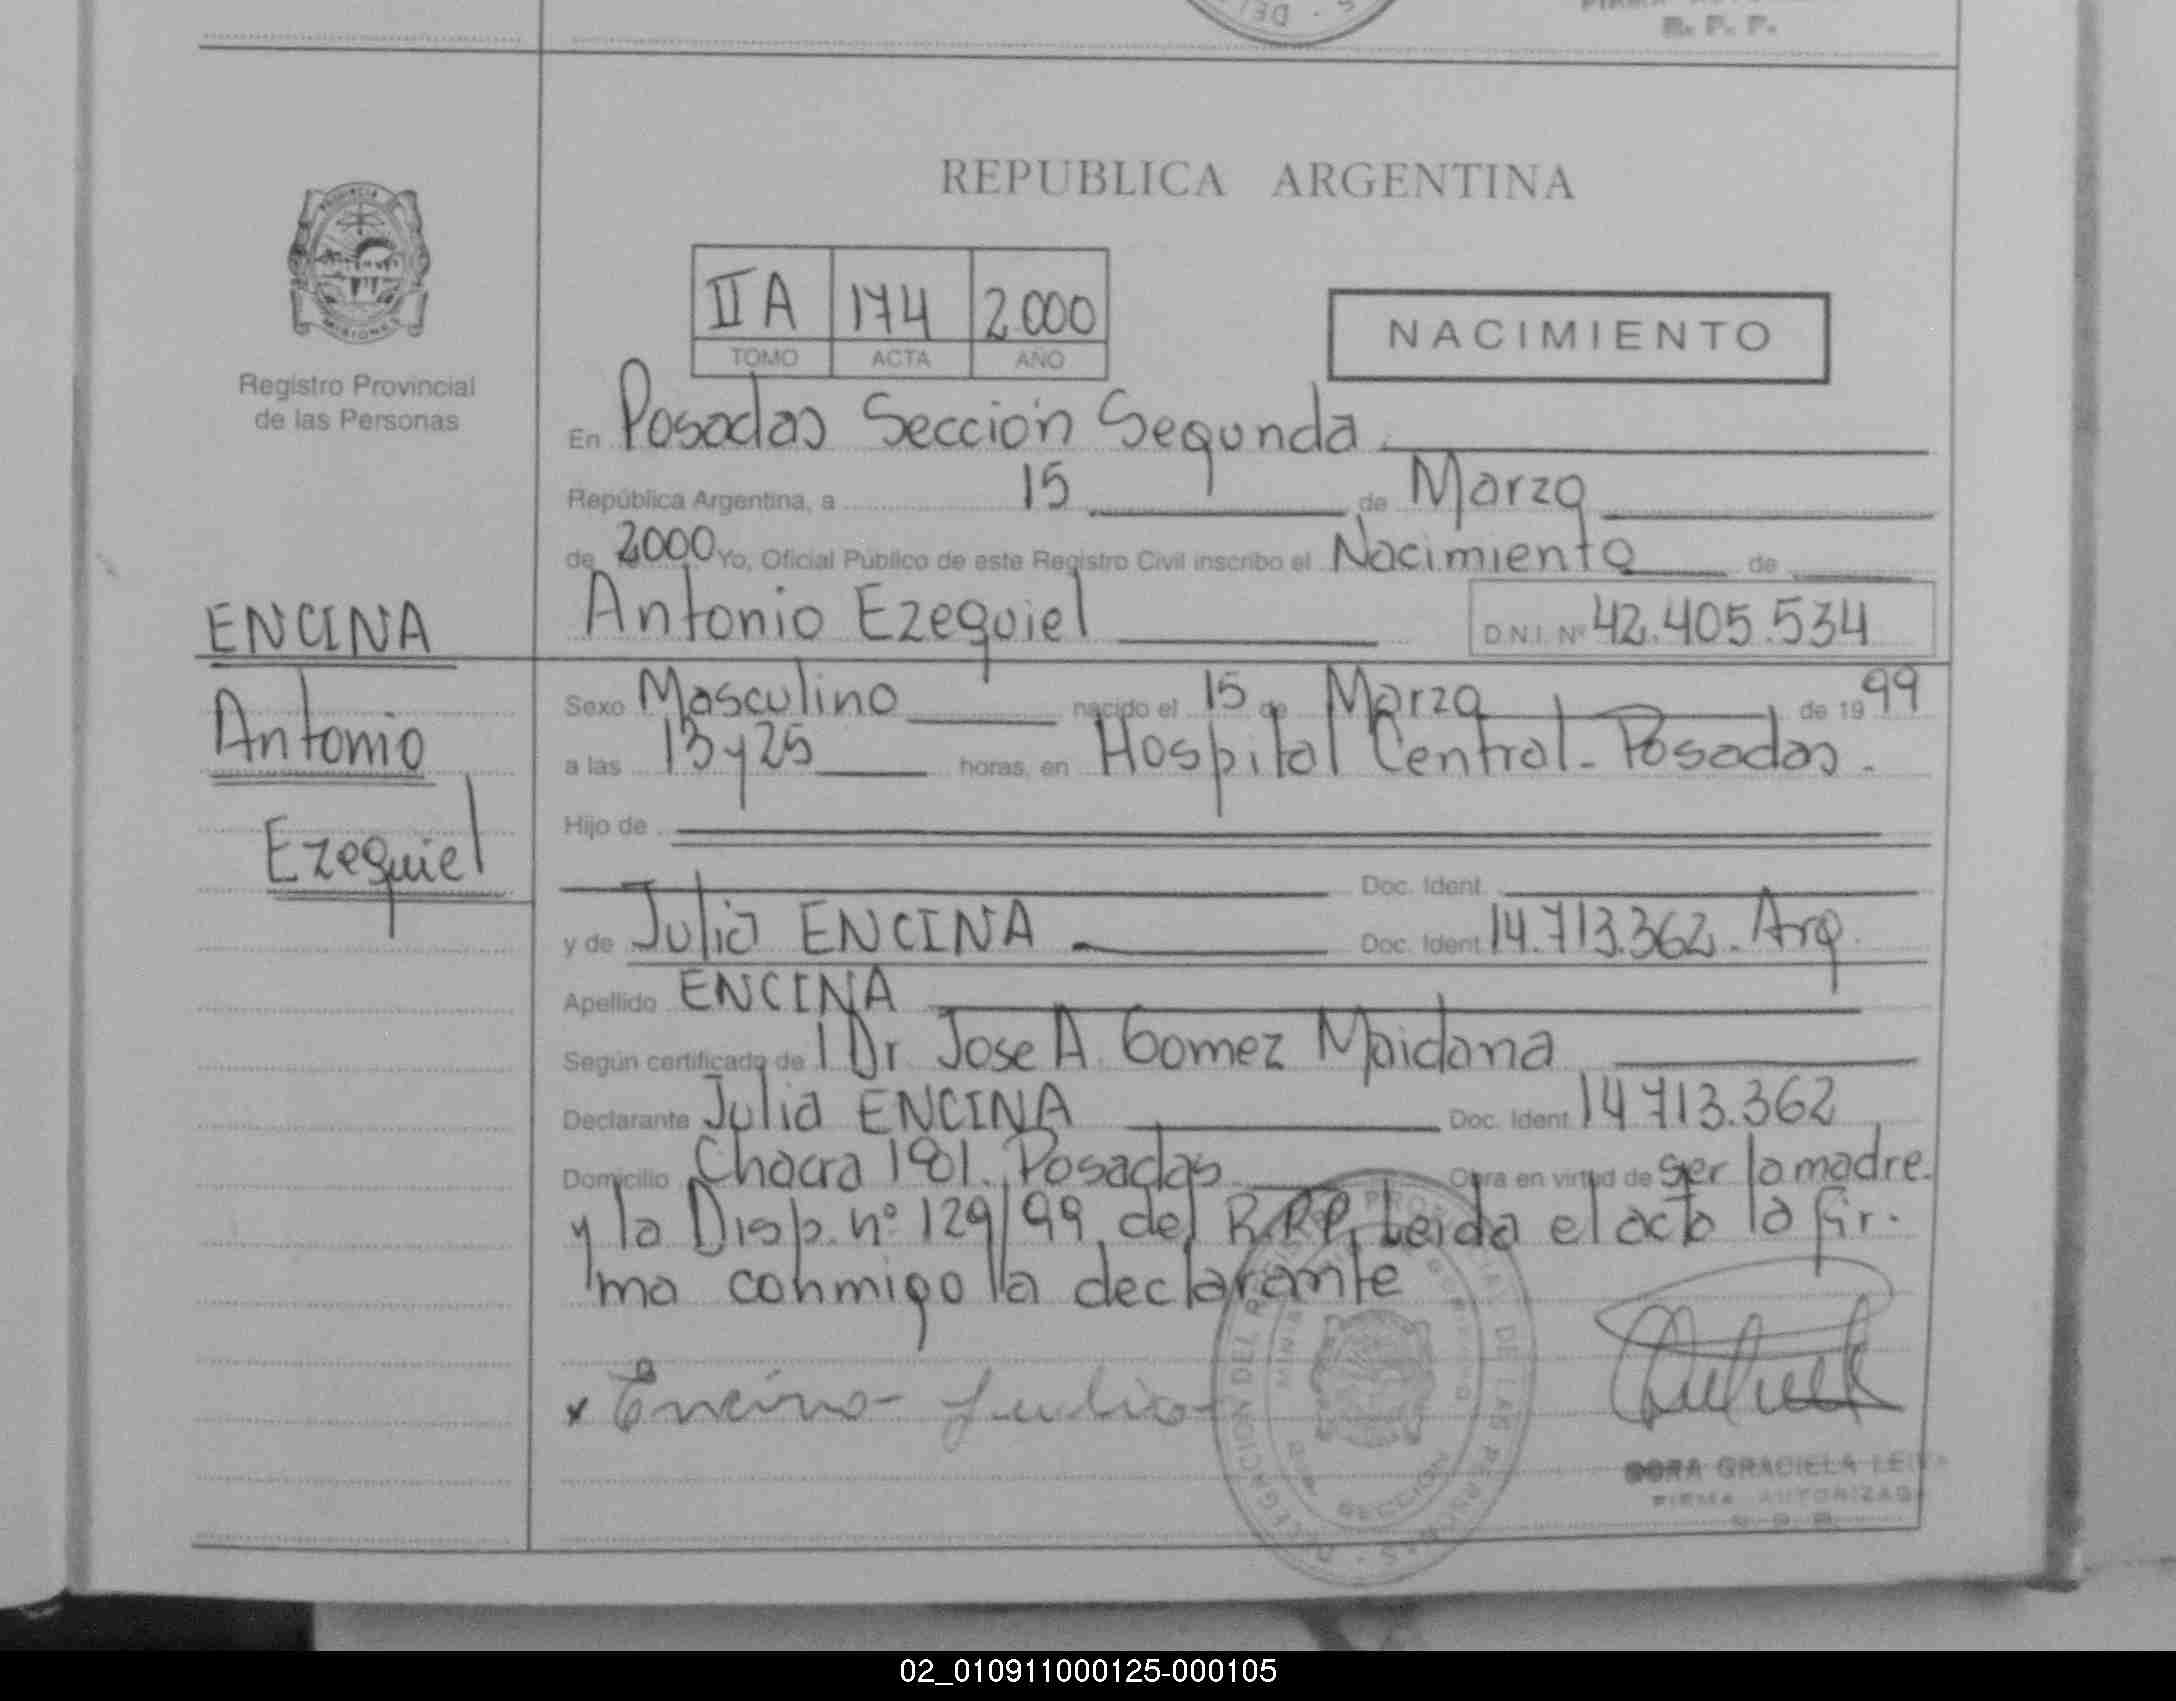 R. P. P.
REPUBLICA ARGENTINA
PROVINCIA
MISIONES
Registro Provincial
de las Personas
II A 174 2.000
TOMO ACTA AÑO
NACIMIENTO
En Posadas Sección Segunda
República Argentina, a 15 de Marzo
de 2000 Yo, Oficial Público de este Registro Civil inscribo el Nacimiento de
Antonio Ezequiel D.N.I. Nº 42.405.534
ENCINA
Antonio
Ezequiel
Sexo Masculino nacido el 15 de Marzo de 1999
a las 13 y 25 horas, en Hospital Central - Posadas.
Hijo de
Doc. Ident.
y de Julia ENCINA Doc. Ident. 14.713.362. Arg.
Apellido ENCINA
Según certificado de l Dr Jose A. Gomez Maidana
Declarante Julia ENCINA Doc. Ident. 14 713.362
Domicilio Chacra 181. Posadas Obra en virtud de ser la madre.
y la Disp. nº 129/99 del R.P.P. Leida el acta la fir-
ma conmigo la declarante
x Encina Julia
DELEGACION DEL REGISTRO PROVINCIAL DE LAS PERSONAS
SECCION
DORA GRACIELA
FIRMA AUTORIZADA
02_010911000125-000105